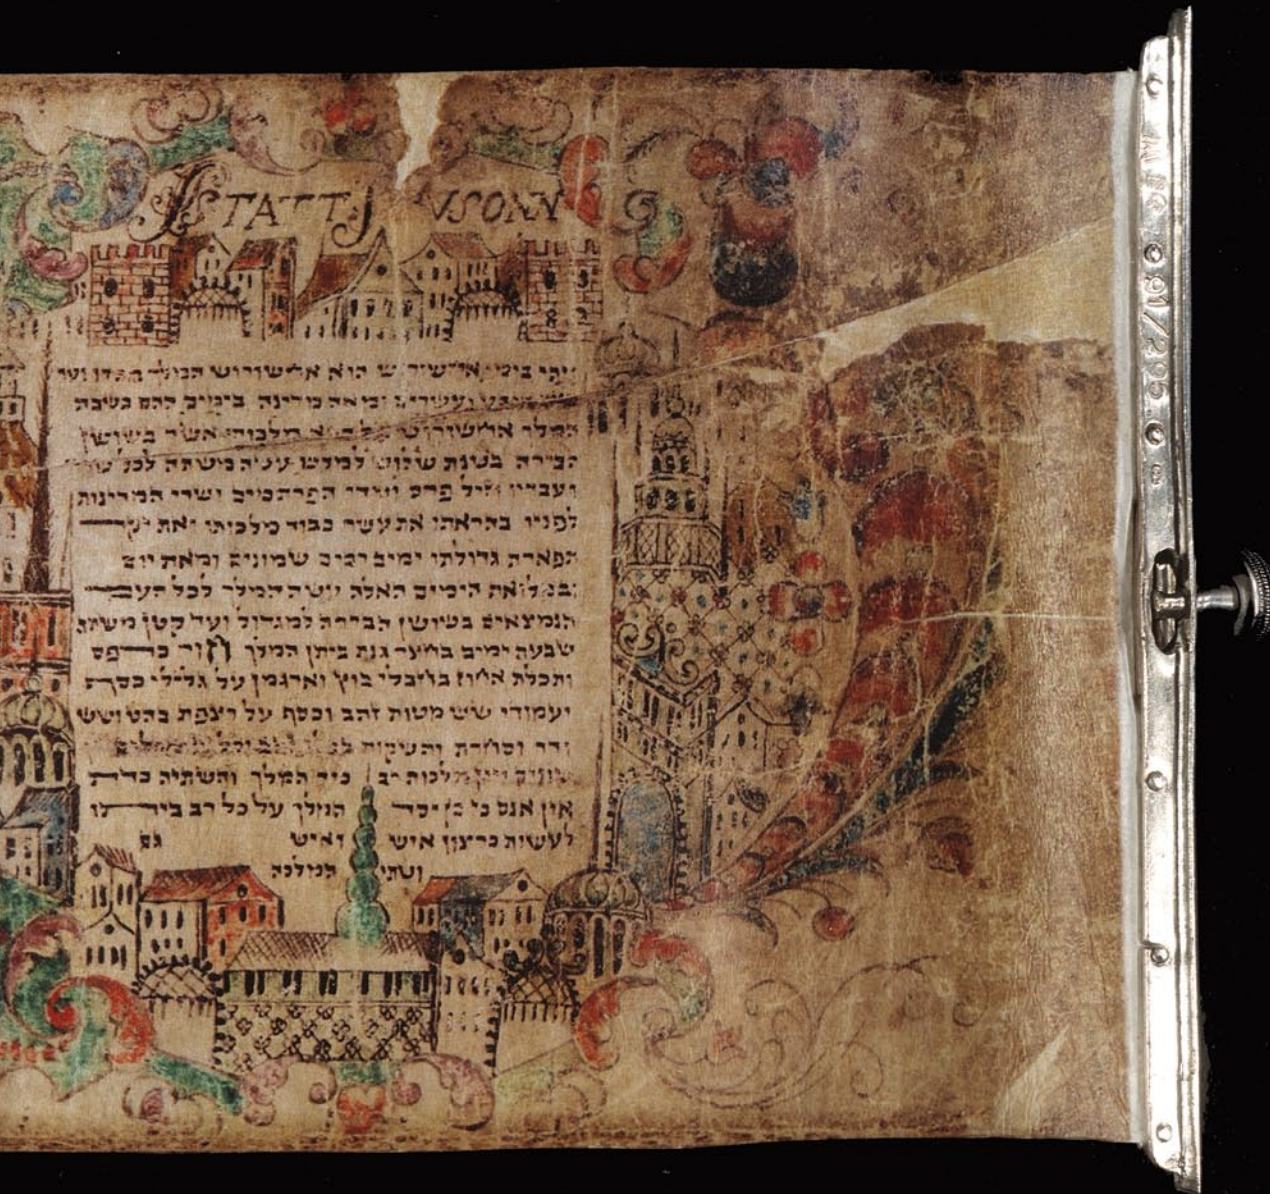 STATT SVSONN
ויהי בימי אחשורוש הוא אחשורוש המולך מהדו ועד
שבע ועשרים ומאה מדינה בימים ההם כשבת
המלך אחשורוש על כסא מלכותו אשר בשושן
הבירה בשנת שלוש למלכו עשה משתה לכל שריו
ועבדיו חיל פרס ומדי הפרתמים ושרי המדינות
לפניו בהראתו את עשר כבוד מלכותו ואת יקר
תפארת גדולתו ימים רבים שמונים ומאת יום
ובמלואת הימים האלה עשה המלך לכל העם
הנמצאים בשושן הבירה למגדול ועד קטן משתה
שבעת ימים בחצר גנת ביתן המלך חור כרפס
ותכלת אחוז בחבלי בוץ וארגמן על גלילי כסף
ועמודי שש מטות זהב וכסף על רצפת בהט ושש
ודר וסחרת והשקות בכלי זהב וכלים מכלים
שונים ויין מלכות רב כיד המלך והשתיה כדת
אין אנס כי כן יסד המלך על כל רב ביתו
לעשות כרצון איש ואיש גם
ושתי המלכה